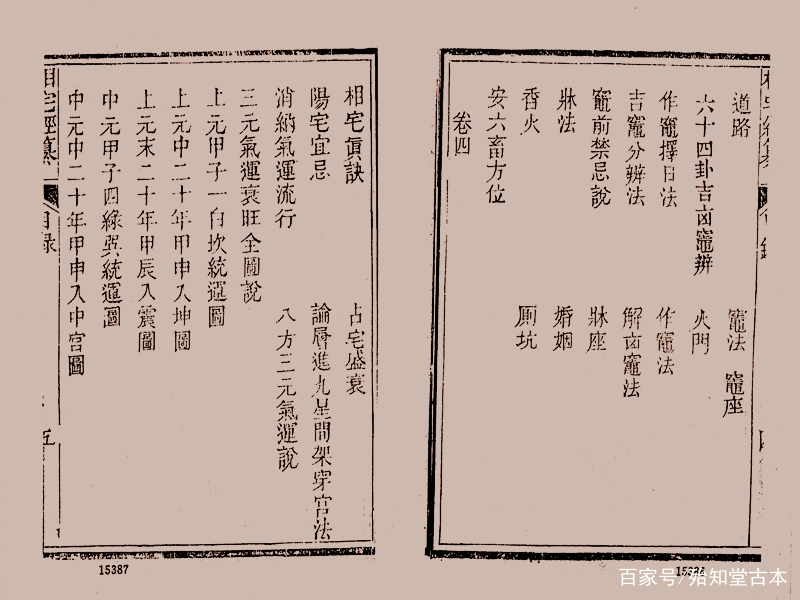 道路 竈法 竈座
六十四卦吉凶竈辨 火門
作竈擇日法 作竈法
吉竈分辨法 解凶竈法
竈前禁忌說 牀座
牀法 婚姻
香火 厕坑
安六畜方位
卷四
15386
相宅真訣 占宅盛衰
陽宅宜忌 論層進九星間架穿宮法
消納氣運流行 八方三元氣運說
三元氣運衰旺全圖說
上元甲子一白坎統運圖
上元中二十年甲申入坤圖
上元末二十年甲辰入震圖
中元甲子四綠巽統運圖
中元中二十年甲申入中宮圖
相宅經纂 目錄 五
15387
百家号/始知堂古本